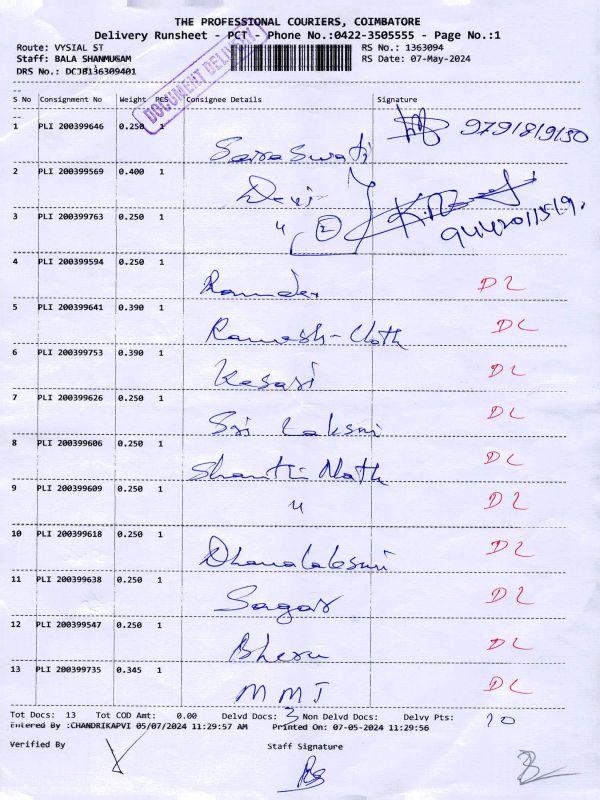 THE PROFESSIONAL COURIERS, COIMBATORE
Delivery Runsheet - PCT - Phone No.:0422-3505555 - Page No.:1
Route: VYSIAL ST RS No.: 1363094
Staff: BALA SHANMUGAM RS Date: 07-May-2024
DRS No.: DCJB136309401
DOCUMENT DELIVERY
S No Consignment No Weight PCS Consignee Details Signature
1 PLI 200399646 0.250 1 Saraswati 9791819150
2 PLI 200399569 0.400 1 Devi
3 PLI 200399763 0.250 1 " 2 9442011519.
4 PLI 200399594 0.250 1 Ramdev DL
5 PLI 200399641 0.390 1 Ramesh-Cloth DL
6 PLI 200399753 0.390 1 Kesari DL
7 PLI 200399626 0.250 1 Sri Laksmi DL
8 PLI 200399606 0.250 1 Shanthi Nath DL
9 PLI 200399609 0.250 1 " DL
10 PLI 200399618 0.250 1 Dhanalaksmi DL
11 PLI 200399638 0.250 1 Sagar DL
12 PLI 200399547 0.250 1 Bheru DL
13 PLI 200399735 0.345 1 MMJ DL
Tot Docs: 13 Tot COD Amt: 0.00 Delvd Docs: 3 Non Delvd Docs: Delvy Pts: 10
Entered By :CHANDRIKAPVI 05/07/2024 11:29:57 AM Printed On: 07-05-2024 11:29:56
Verified By Staff Signature